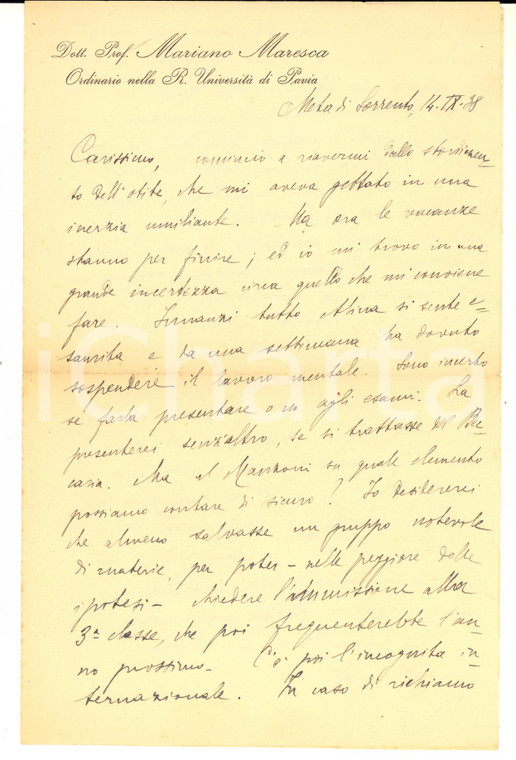 Dott. Prof. Mariano Maresca
Ordinario nella R. Università di Pavia
Meta di Sorrento, 14-IX-38
Carissimo, comincio a riavermi dallo stordimen-
to dell'otite, che mi aveva gettato in una
inerzia umiliante. Ma ora le vacanze
stanno per finire; ed io mi trovo in una
grande incertezza circa quello che mi conviene
fare. Innanzi tutto Alina si sente e-
saurita e da una settimana ha dovuto
sospendere il lavoro mentale. Sono incerto
se farla presentare o no agli esami. La
presenterei senz'altro, se si trattasse del Bec-
caria. Ma al Manzoni su quale elemento
possiamo contare di sicuro? Io desidererei
che almeno salvasse un gruppo notevole
di materie, per poter - nelle peggiore delle
ipotesi - chiedere l'ammissione alla
3ª classe, che poi frequenterebbe l'an-
no prossimo. C'è poi l'incognita in-
ternazionale. In caso di richiamo
iCharta